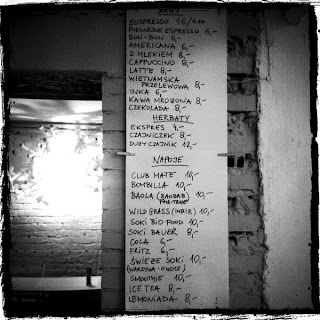 KAWY
ESPRESSO
PODWÓJNE ESPRESSO 6,-
BON-BON 6,-
AMERICANA 6,-
Z MLEKIEM 8,-
CAPPUCCINO 8,-
LATTE 8,-
WIETNAMSKA
PRZELEWOWA 8,-
INKA 6,-
KAWA MROŻONA 8,-
CZEKOLADA 8,-
HERBATY
EKSPRES 4,-
CZAJNICZEK 8,-
DUŻY CZAJNIK 12,-
NAPOJE
CLUB MATE 10,-
BOMBILLA 10,-
BAOLA (BAOBAB) 10,-
FAIR TRADE
WILD GRASS (IMBIR) 10,-
SOKI BIO FOOD 10,-
SOKI BAUER 8,-
COLA 6,-
FRITZ 6,-
ŚWIEŻE SOKI 10,-
(WARZYWA-OWOCE)
SMOOTHIE 10,-
ICE TEA 8,-
LEMONIADA 8,-